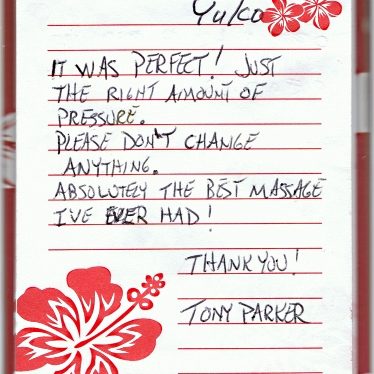 Yuko
IT WAS PERFECT! JUST
THE RIGHT AMOUNT OF
PRESSURE.
PLEASE DON'T CHANGE
ANYTHING.
ABSOLUTELY THE BEST MASSAGE
I'VE EVER HAD!
THANK YOU!
TONY PARKER